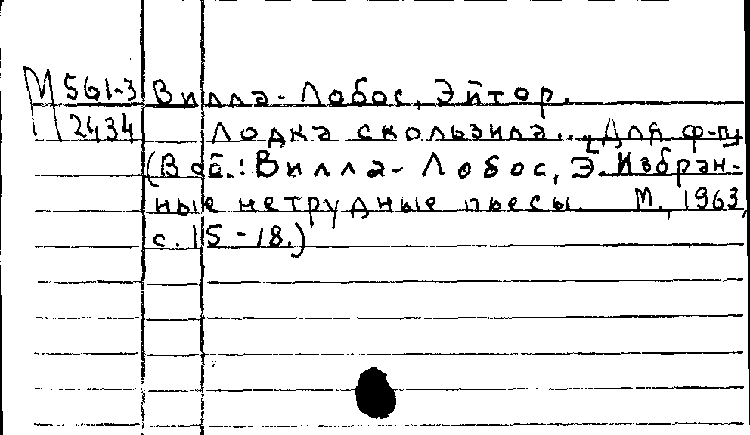 М 561-3 Вилла-Лобос, Эйтор.
2434 Лодка скользила... [Для ф-п]
(В сб.: Вилла-Лобос, Э. Избран-
ные нетрудные пьесы. М., 1963,
с. 15-18.)